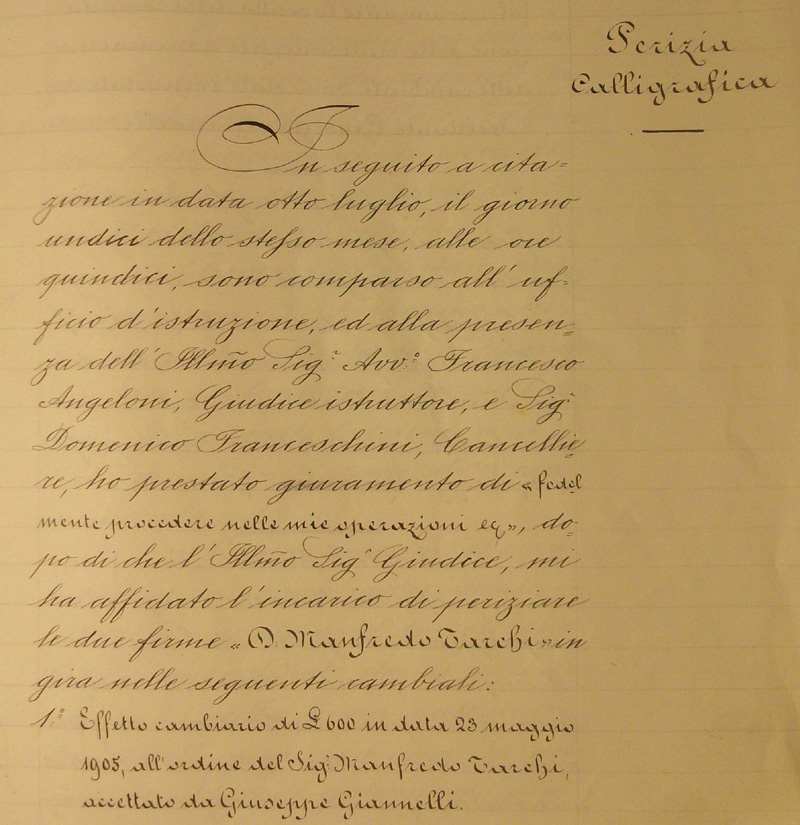 Perizia
Calligrafica
In seguito a cita=
zione in data otto luglio, il giorno
undici dello stesso mese, alle ore
quindici, sono comparso all'uf=
ficio d'istruzione, ed alla presen=
za dell'Illm̃o Sig.r Avv.o Francesco
Angeloni, Giudice istruttore, e Sig.r
Domenico Franceschini, Cancellie=
re, ho prestato giuramento di «fedel
mente procedere nelle mie operazioni », do=
po di che l'Illm̃o Sig.r Giudice, mi
ha affidato l'incarico di periziare
le due firme « D. Manfredo Tarchi» in
gira nelle seguenti cambiali:
1.o Effetto cambiario di £ 600 in data 23 maggio
1905, all'ordine del Sig.r Manfredo Tarchi,
accettato da Giuseppe Giannelli.